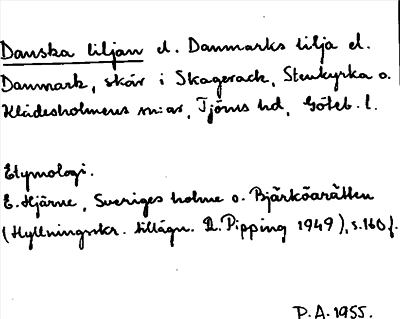 Danska liljan el. Danmarks lilja el.
Danmark, skär i Skagerack, Stenkyrka o.
Klädesholmens sn:ar, Tjörns hd, Göteb. l.
Etymologi.
E. Hjärne, Sveriges holme o. Bjärköarätten
(Hyllningsskr. tillägn. R. Pipping 1949), s. 160 f.
P.A. 1955.